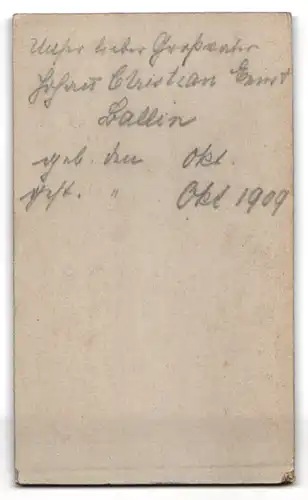 Unser lieber Großvater
Johann Christian Ernst
Ballin
geb. den Okt.
gest. " Okt 1909